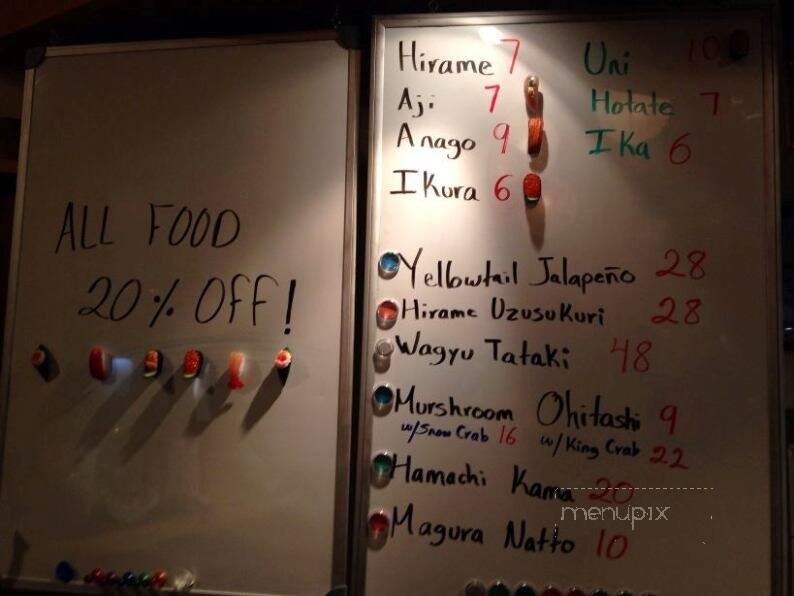 ALL FOOD
20% OFF!
Hirame 7
Aji 7
Anago 9
IKura 6
Uni 10
Hotate 7
IKa 6
Yellowtail Jalapeño 28
Hirame Uzusukuri 28
Wagyu Tataki 48
Murshroom Ohitashi 9
w/Snow Crab 16 w/King Crab 22
Hamachi Kama 20
Magura Natto 10
menupix